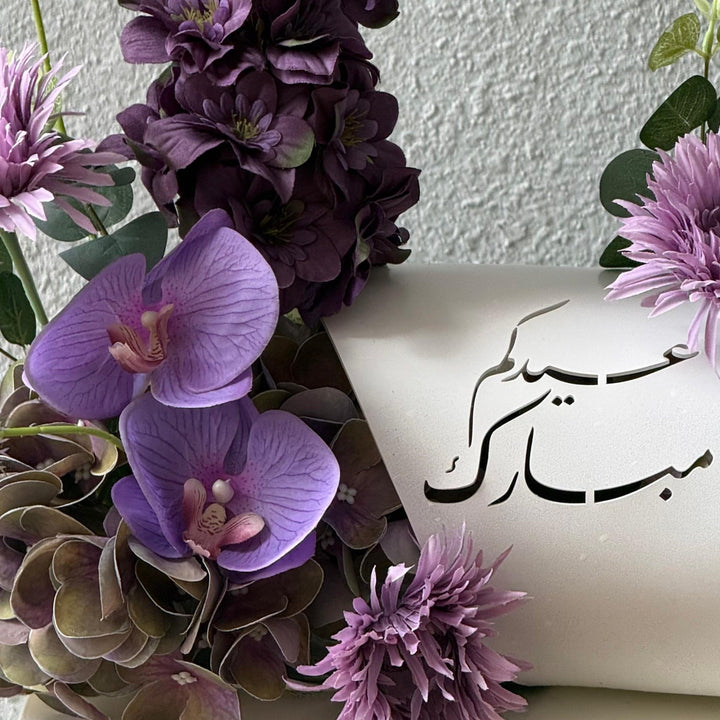 عيدكم
مبارك